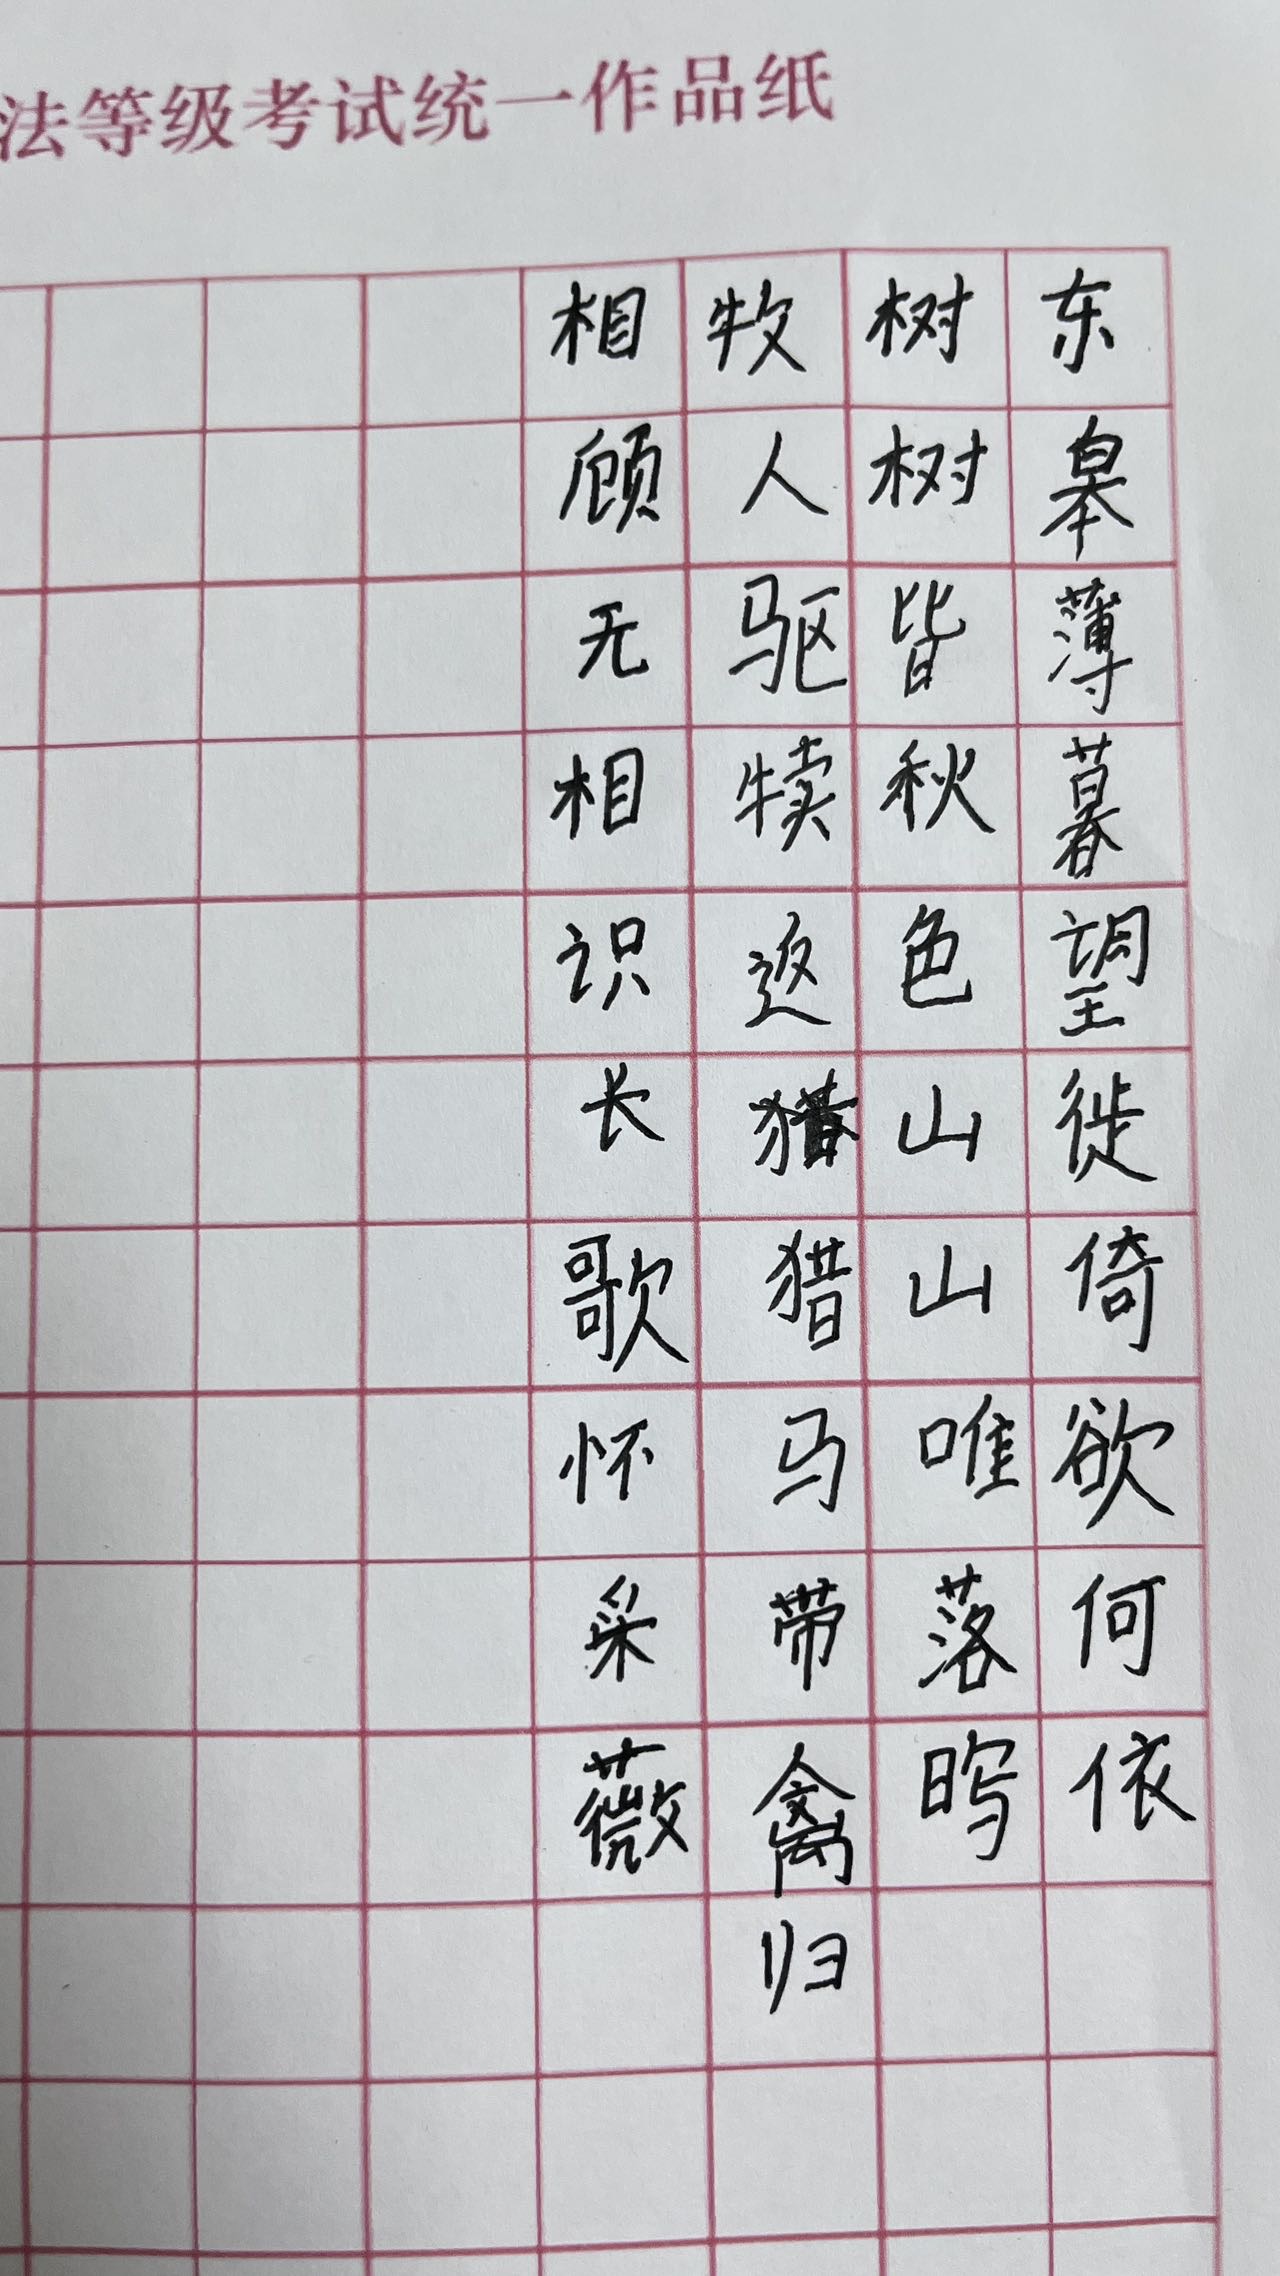 法等级考试统一作品纸
东皋薄暮望徙倚欲何依
树树皆秋色山山唯落晖
牧人驱犊返猎马带禽归
相顾无相识长歌怀采薇